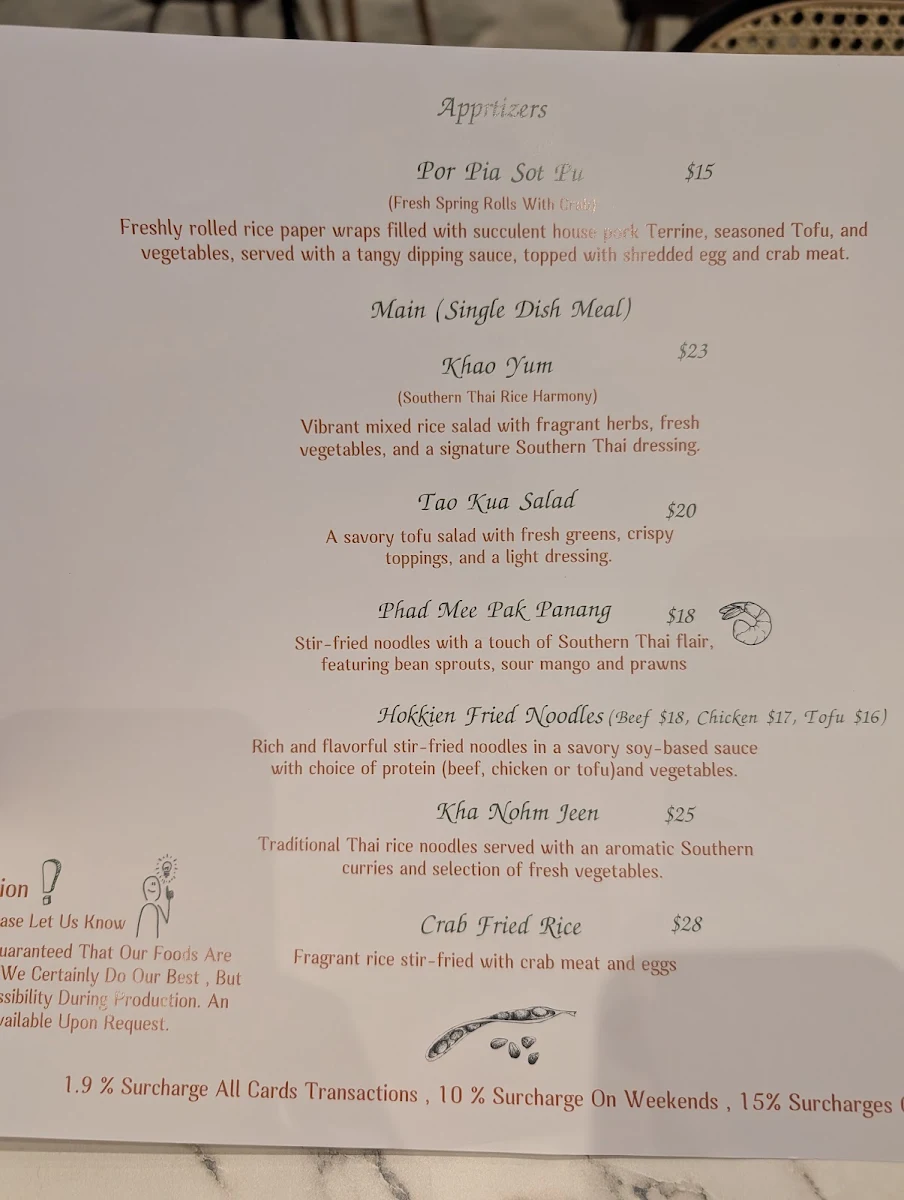 Apprtizers
Por Pia Sot Pu $15
(Fresh Spring Rolls With Crab)
Freshly rolled rice paper wraps filled with succulent house pork Terrine, seasoned Tofu, and
vegetables, served with a tangy dipping sauce, topped with shredded egg and crab meat.
Main (Single Dish Meal)
Khao Yum $23
(Southern Thai Rice Harmony)
Vibrant mixed rice salad with fragrant herbs, fresh
vegetables, and a signature Southern Thai dressing.
Tao Kua Salad $20
A savory tofu salad with fresh greens, crispy
toppings, and a light dressing.
Phad Mee Pak Panang $18
Stir-fried noodles with a touch of Southern Thai flair,
featuring bean sprouts, sour mango and prawns
Hokkien Fried Noodles (Beef $18, Chicken $17, Tofu $16)
Rich and flavorful stir-fried noodles in a savory soy-based sauce
with choice of protein (beef, chicken or tofu)and vegetables.
Kha Nohm Jeen $25
Traditional Thai rice noodles served with an aromatic Southern
curries and selection of fresh vegetables.
Crab Fried Rice $28
Fragrant rice stir-fried with crab meat and eggs
ion !
ase Let Us Know
uaranteed That Our Foods Are
We Certainly Do Our Best , But
ssibility During Production. An
vailable Upon Request.
1.9 % Surcharge All Cards Transactions , 10 % Surcharge On Weekends , 15% Surcharges